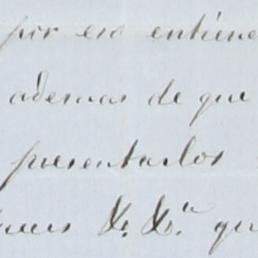 por eso entiene
ademas de que
presentarlos
qu